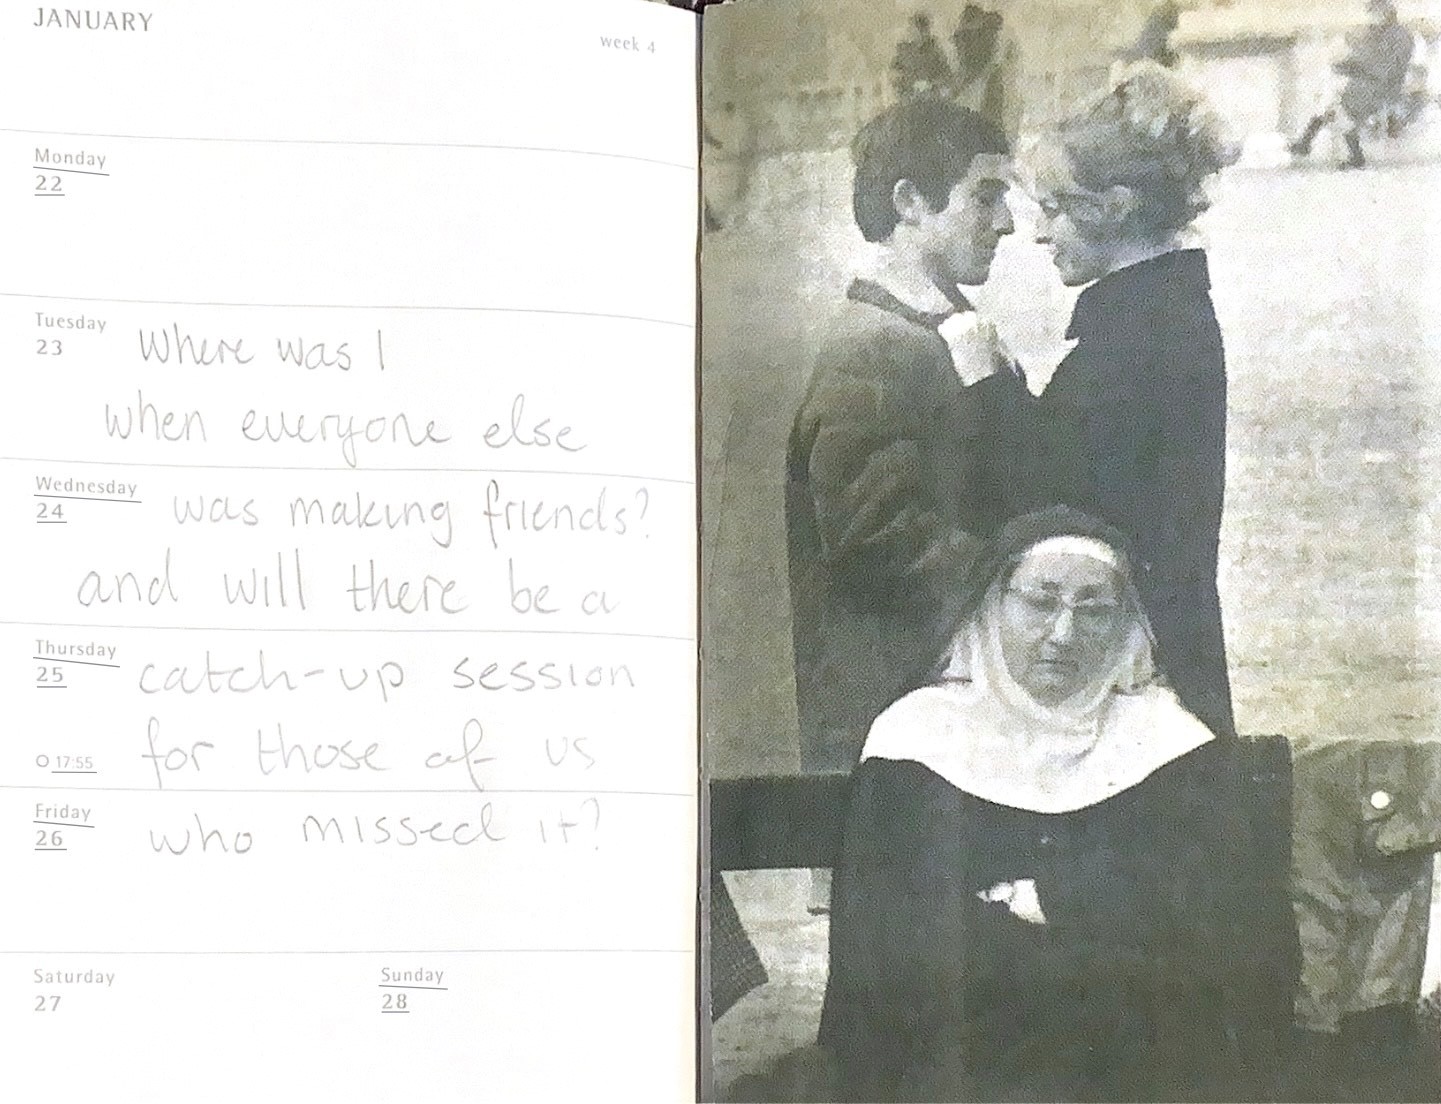 JANUARY
week 4
Monday
22
Tuesday
23
Where was I
when everyone else
Wednesday
24
was making friends?
and will there be a
Thursday
25
catch-up session
O 17:55
for those of us
Friday
26
who missed it?
Saturday
27
Sunday
28